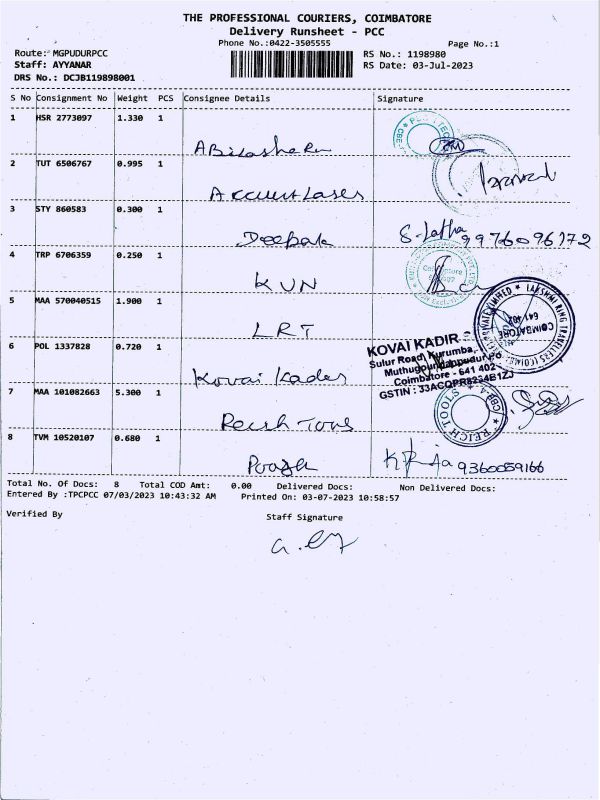 THE PROFESSIONAL COURIERS, COIMBATORE
Delivery Runsheet - PCC
Phone No.:0422-3505555
Page No.:1
Route: MGPUDURPCC
RS No.: 1198980
Staff: AYYANAR
RS Date: 03-Jul-2023
DRS No.: DCJB119898001
S No Consignment No Weight PCS Consignee Details Signature
1 HSR 2773097 1.330 1
2 TUT 6506767 0.995 1
3 STY 860583 0.300 1 Deepak S. Latha 9976096172
4 TRP 6706359 0.250 1 KUN
5 MAA 570040515 1.900 1 LRT
LAKSHMI RING TRAVELLERS (COIMBATORE) PRIVATE LIMITED
COIMBATORE 641 402
6 POL 1337828 0.720 1 Kovai Kader
KOVAI KADIR
Sulur Road, Kurumba,
Muthugoundanpudur Po
Coimbatore - 641 402
GSTIN : 33ACQPR8224B1ZJ
7 MAA 101082663 5.300 1 Reich Tools
REICH TOOLS CBE-4
8 TVM 10520107 0.680 1 Pooja K Raja 9360059166
Total No. Of Docs: 8 Total COD Amt: 0.00 Delivered Docs: Non Delivered Docs:
Entered By :TPCPCC 07/03/2023 10:43:32 AM Printed On: 03-07-2023 10:58:57
Verified By Staff Signature